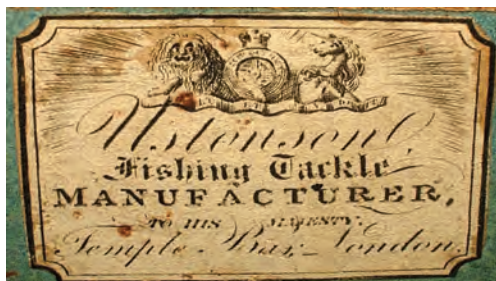 Ustonson
Fishing Tackle
MANUFACTURER,
TO HIS MAJESTY.
Temple Bar London.